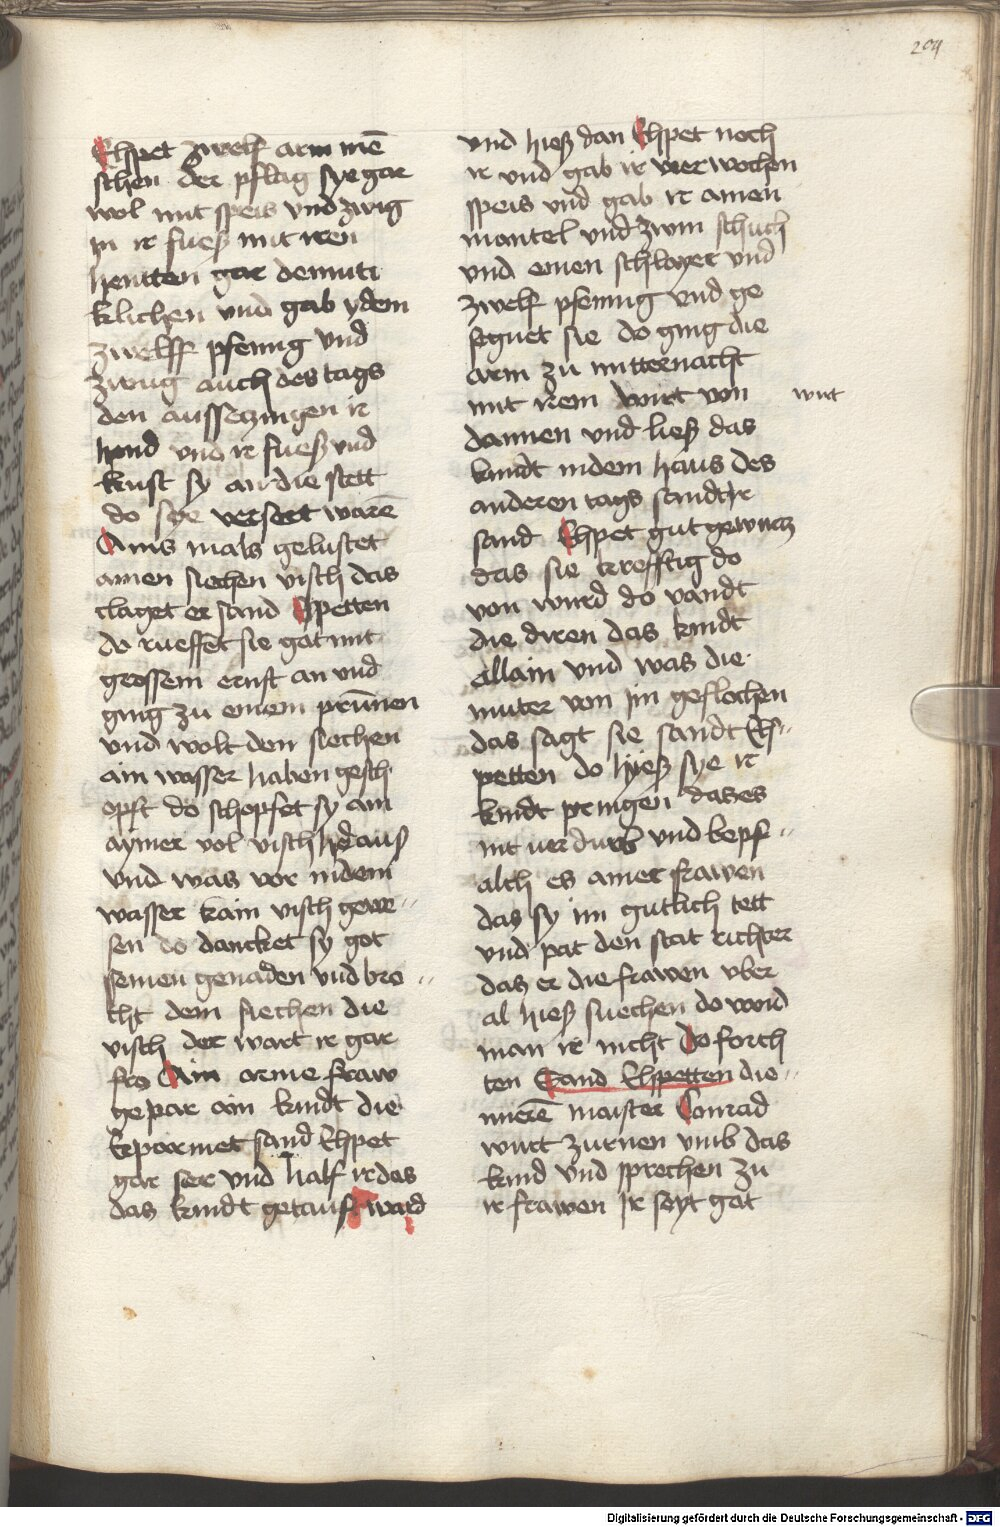 204
Elspet zwelf arm mē
schen der pflag sye gar
wol mit speis vnd zwig
in ir fuesß mit iren
hentten gar demuti
klichen vnd gab ydem
zwelff pfenig vnd
zwug auch des tags
den aussetzingen ir
hend vnd ir fuesß vnd
kust sy an die stett
do sye versert warē
Ains mals gelustet
ainen siechen visch das
claget er sand Elspetten
do rueffet sie got mit
grossem ernst an vnd
ging zu einem prūnen
vnd wolt dem siechen
ain wasser haben gesch
opft do schopfet sy ain
aymer vol visch heraus
vnd was vor in dem
wasser kain visch gewe
sen do dancket sy got
seinen genaden vnd bro
cht dem siechen die
visch der wart er gar
fro Ain arme fraw
gepar ain kindt die
erparmet sand Elspet
gar ser vnd half ir das
das kindt getauft ward
vnd hiesß dan Elspet noch
ir vnd gab ir vier wochen
speis vnd gab ir ainen
mantel vnd zwm schuch
vnd einen schlayer vnd
zwelf pfennig vnd ge
segnet sie do ging die
arm zu mitternacht
mit irem wirt von
wirt
dannen vnd liesß das
kindt in dem haus des
anderen tags sandt ir
sand Elspet gut gewurcz
das sie krefftig do
von wurd do vandt
die diren das kindt
allain vnd was die
muter von im geflochen
das sagt sie sandt Els
petten do hyesß sye ir
kindt pringen das es
nit verdurb vnd bepf
alch es ainer frawen
das sy im gutlich tett
vnd pat den stat richter
das er die frawen vber
al hiesß suechen do wond
man ir nicht Do forch
ten Sand Elspetten die
nierē maister Conrad
wurt zurnen vmb das
kind vnd sprochen zu
ir frawen Ir seyt got
Digitalisierung gefördert durch die Deutsche Forschungsgemeinschaft - DFG